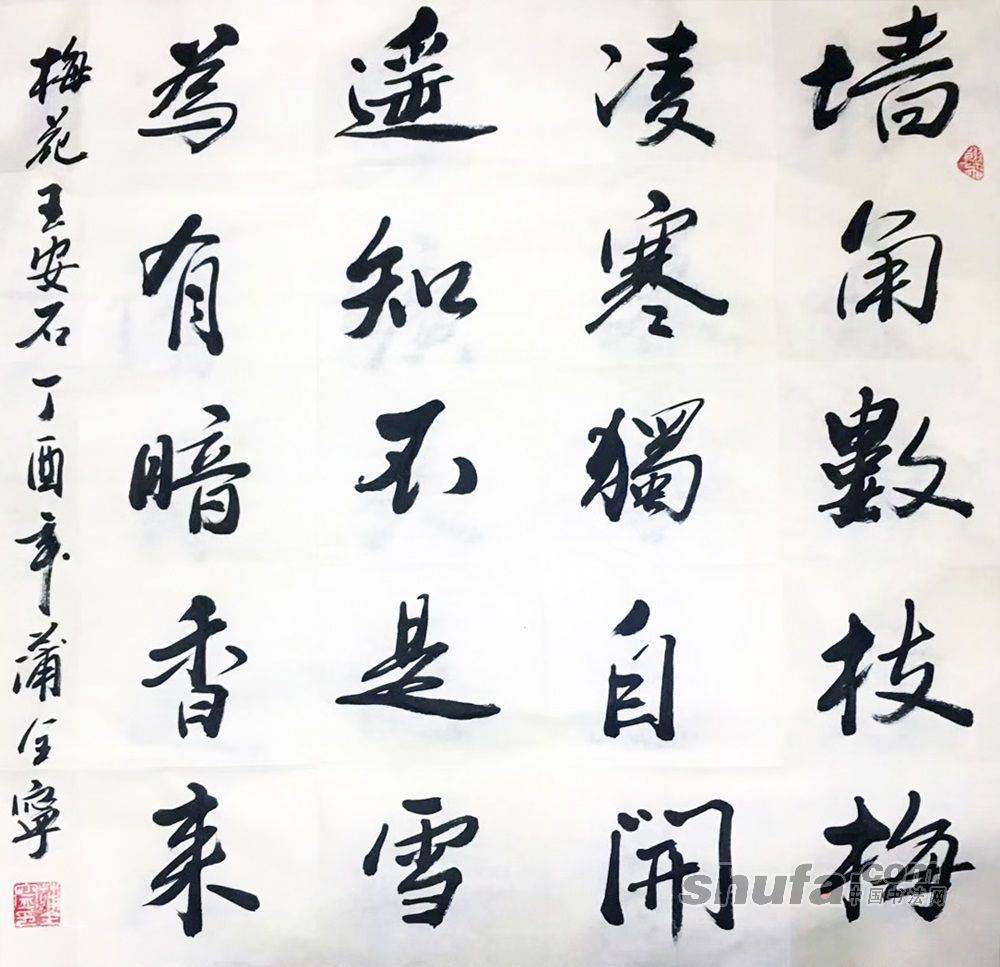 墙角數枝梅
凌寒獨自開
遥知不是雪
為有暗香来
梅花王安石丁酉年蒲全寧
shufa.com
中国书法网